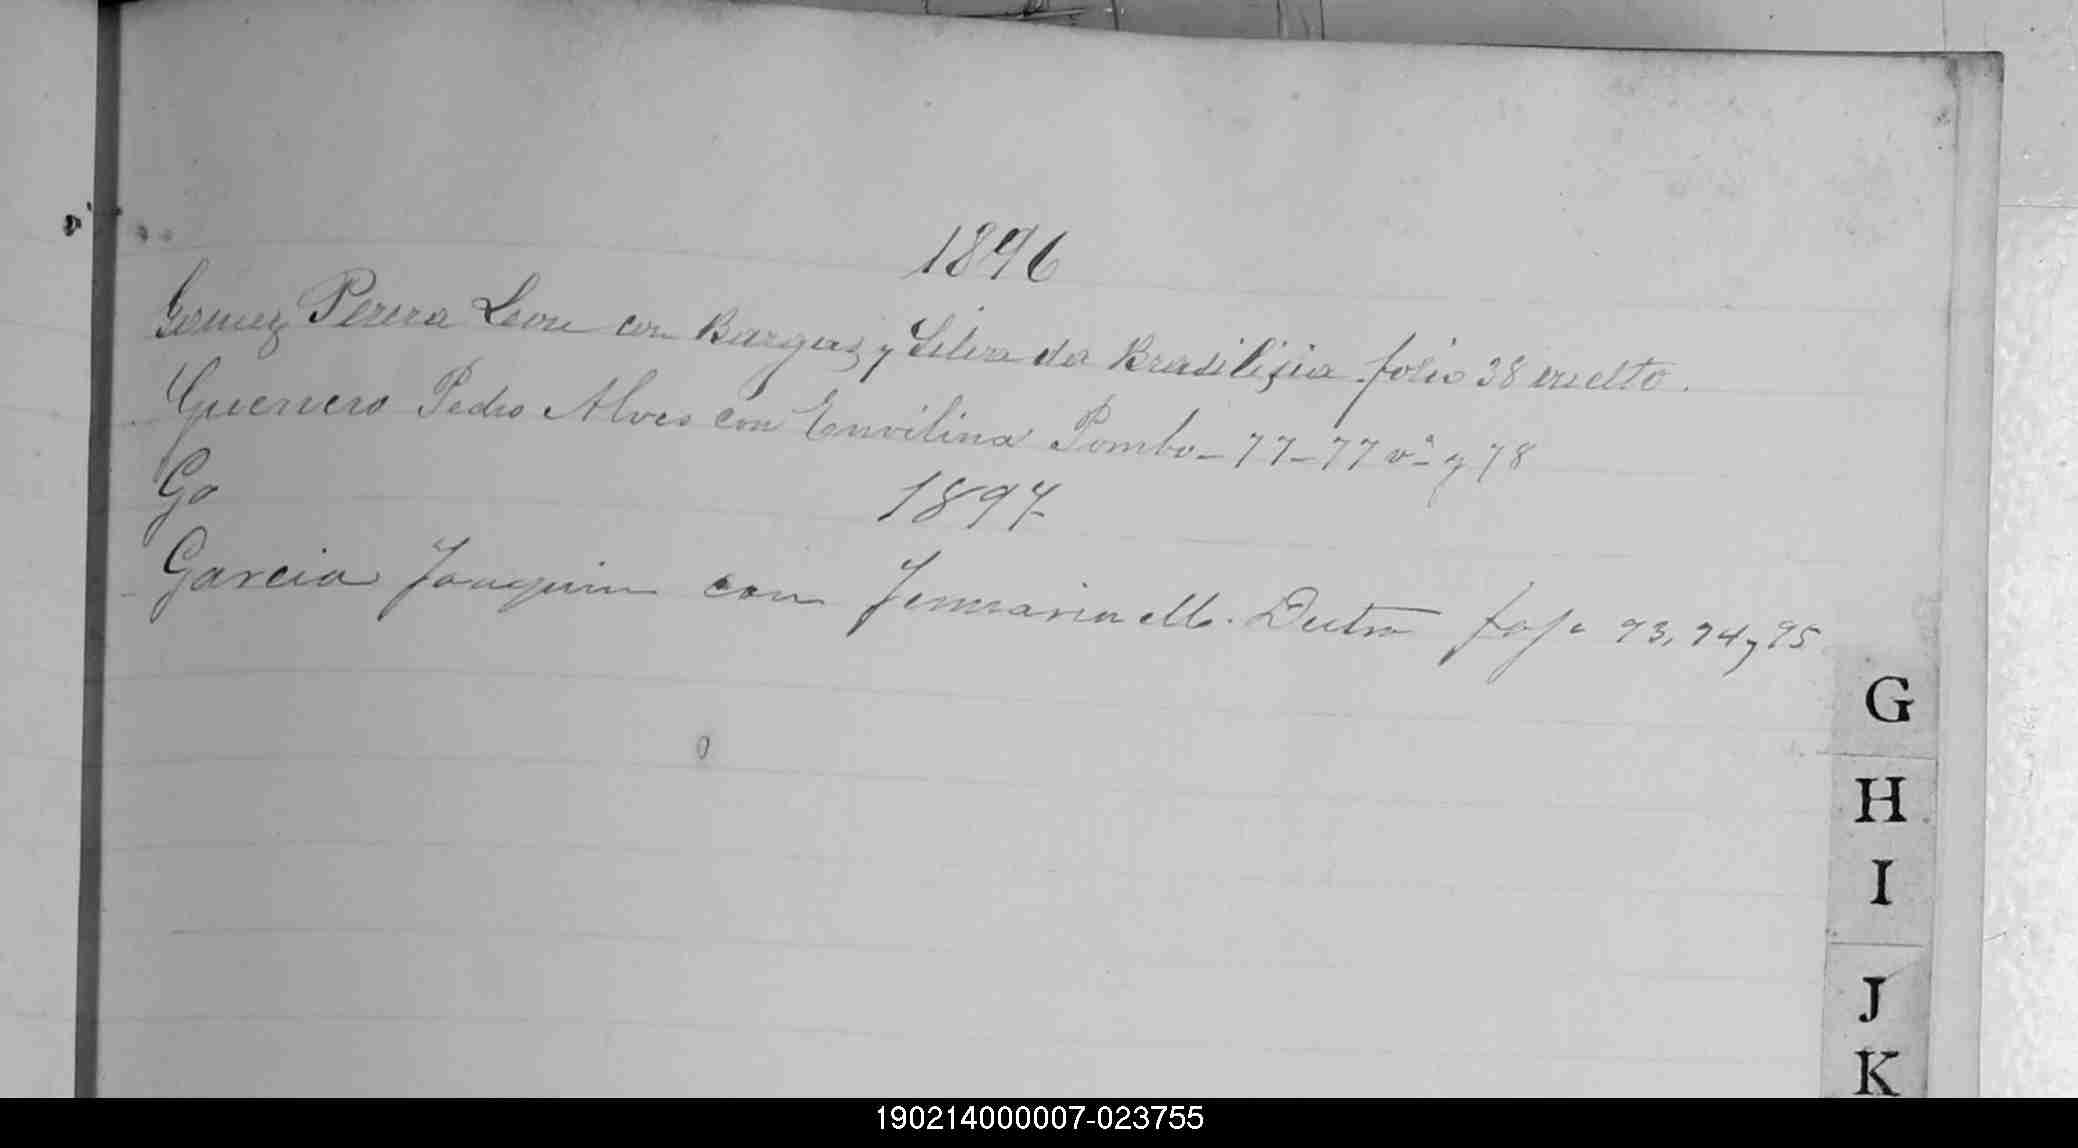 1896
Gomez Perera Leon con Bargas y Silva da Brasilisia folio 38 vuelto.
Guerrero Pedro Alves con Enovilina Pombo - 77 - 77 vº y 78
Go
1897
Garcia Joaquin con M. Dutra 93, 94 y 95
G
H
I
J
K
190214000007-023755